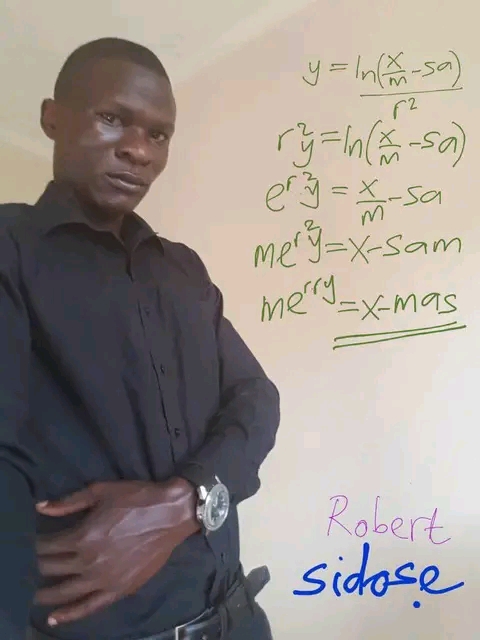 y = ln(x/m - sa)/r²
r²y = ln(x/m - sa)
e^r²y = x/m - sa
me^r²y = x - sam
me^rry = x - mas
Robert
sidose